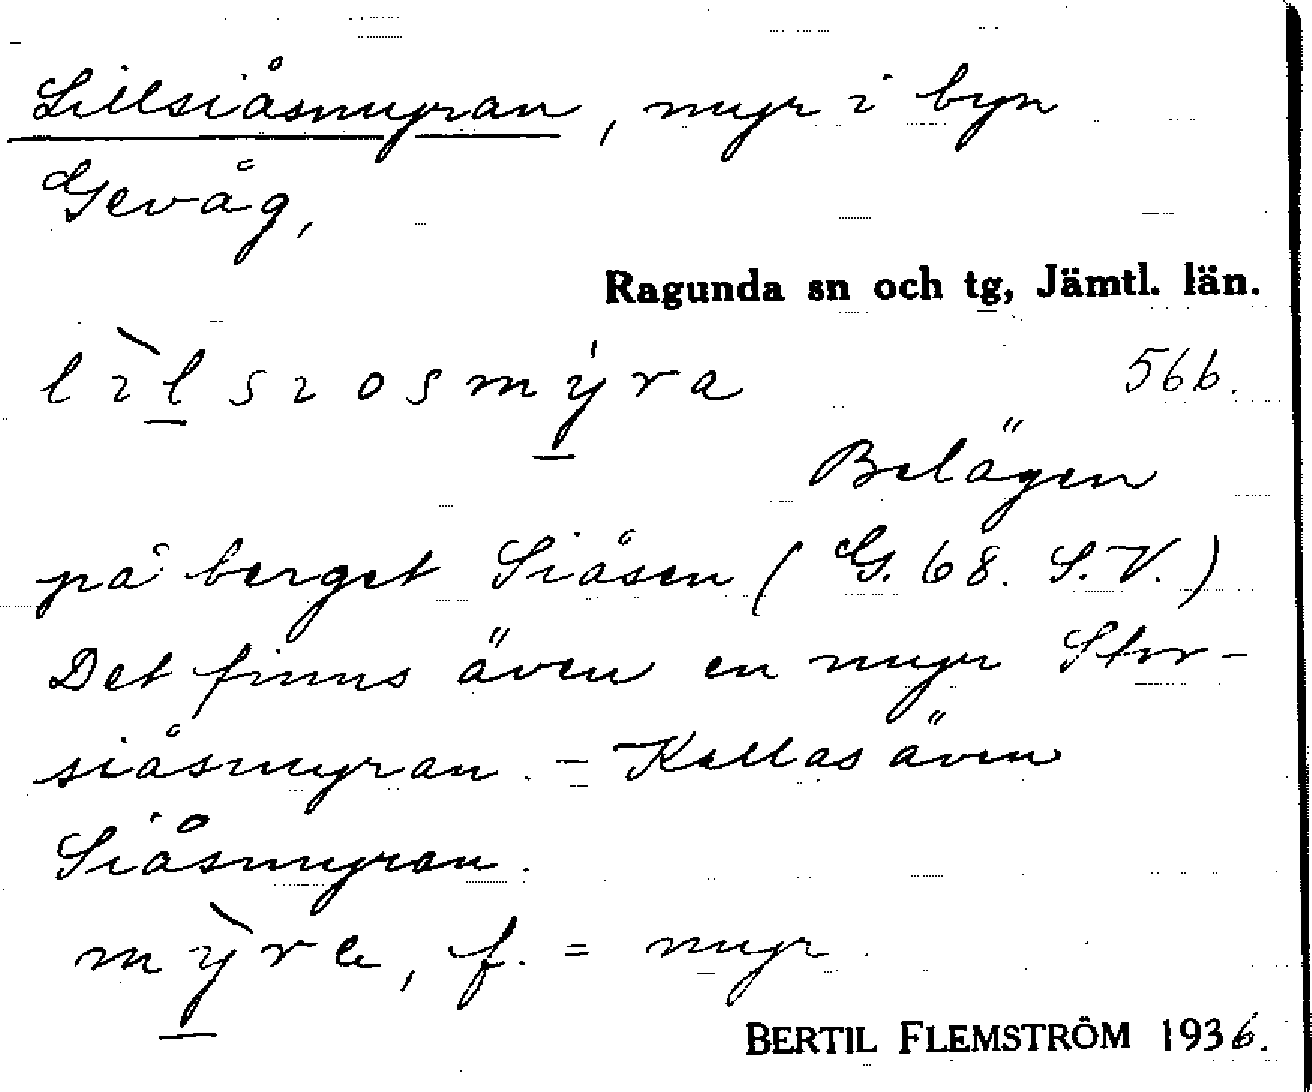 Lillsiåsmyran, myr i byn
Gevåg,
Ragunda sn och tg, Jämtl. län.
lìlsıosmýra 566.
Belägen
på berget Siåsen (G. 68. S.V.)
Det finns även en myr Stor-
siåsmyran. – Kallas även
Siåsmyran.
mỳra, f. = myr
BERTIL FLEMSTRÖM 1936.